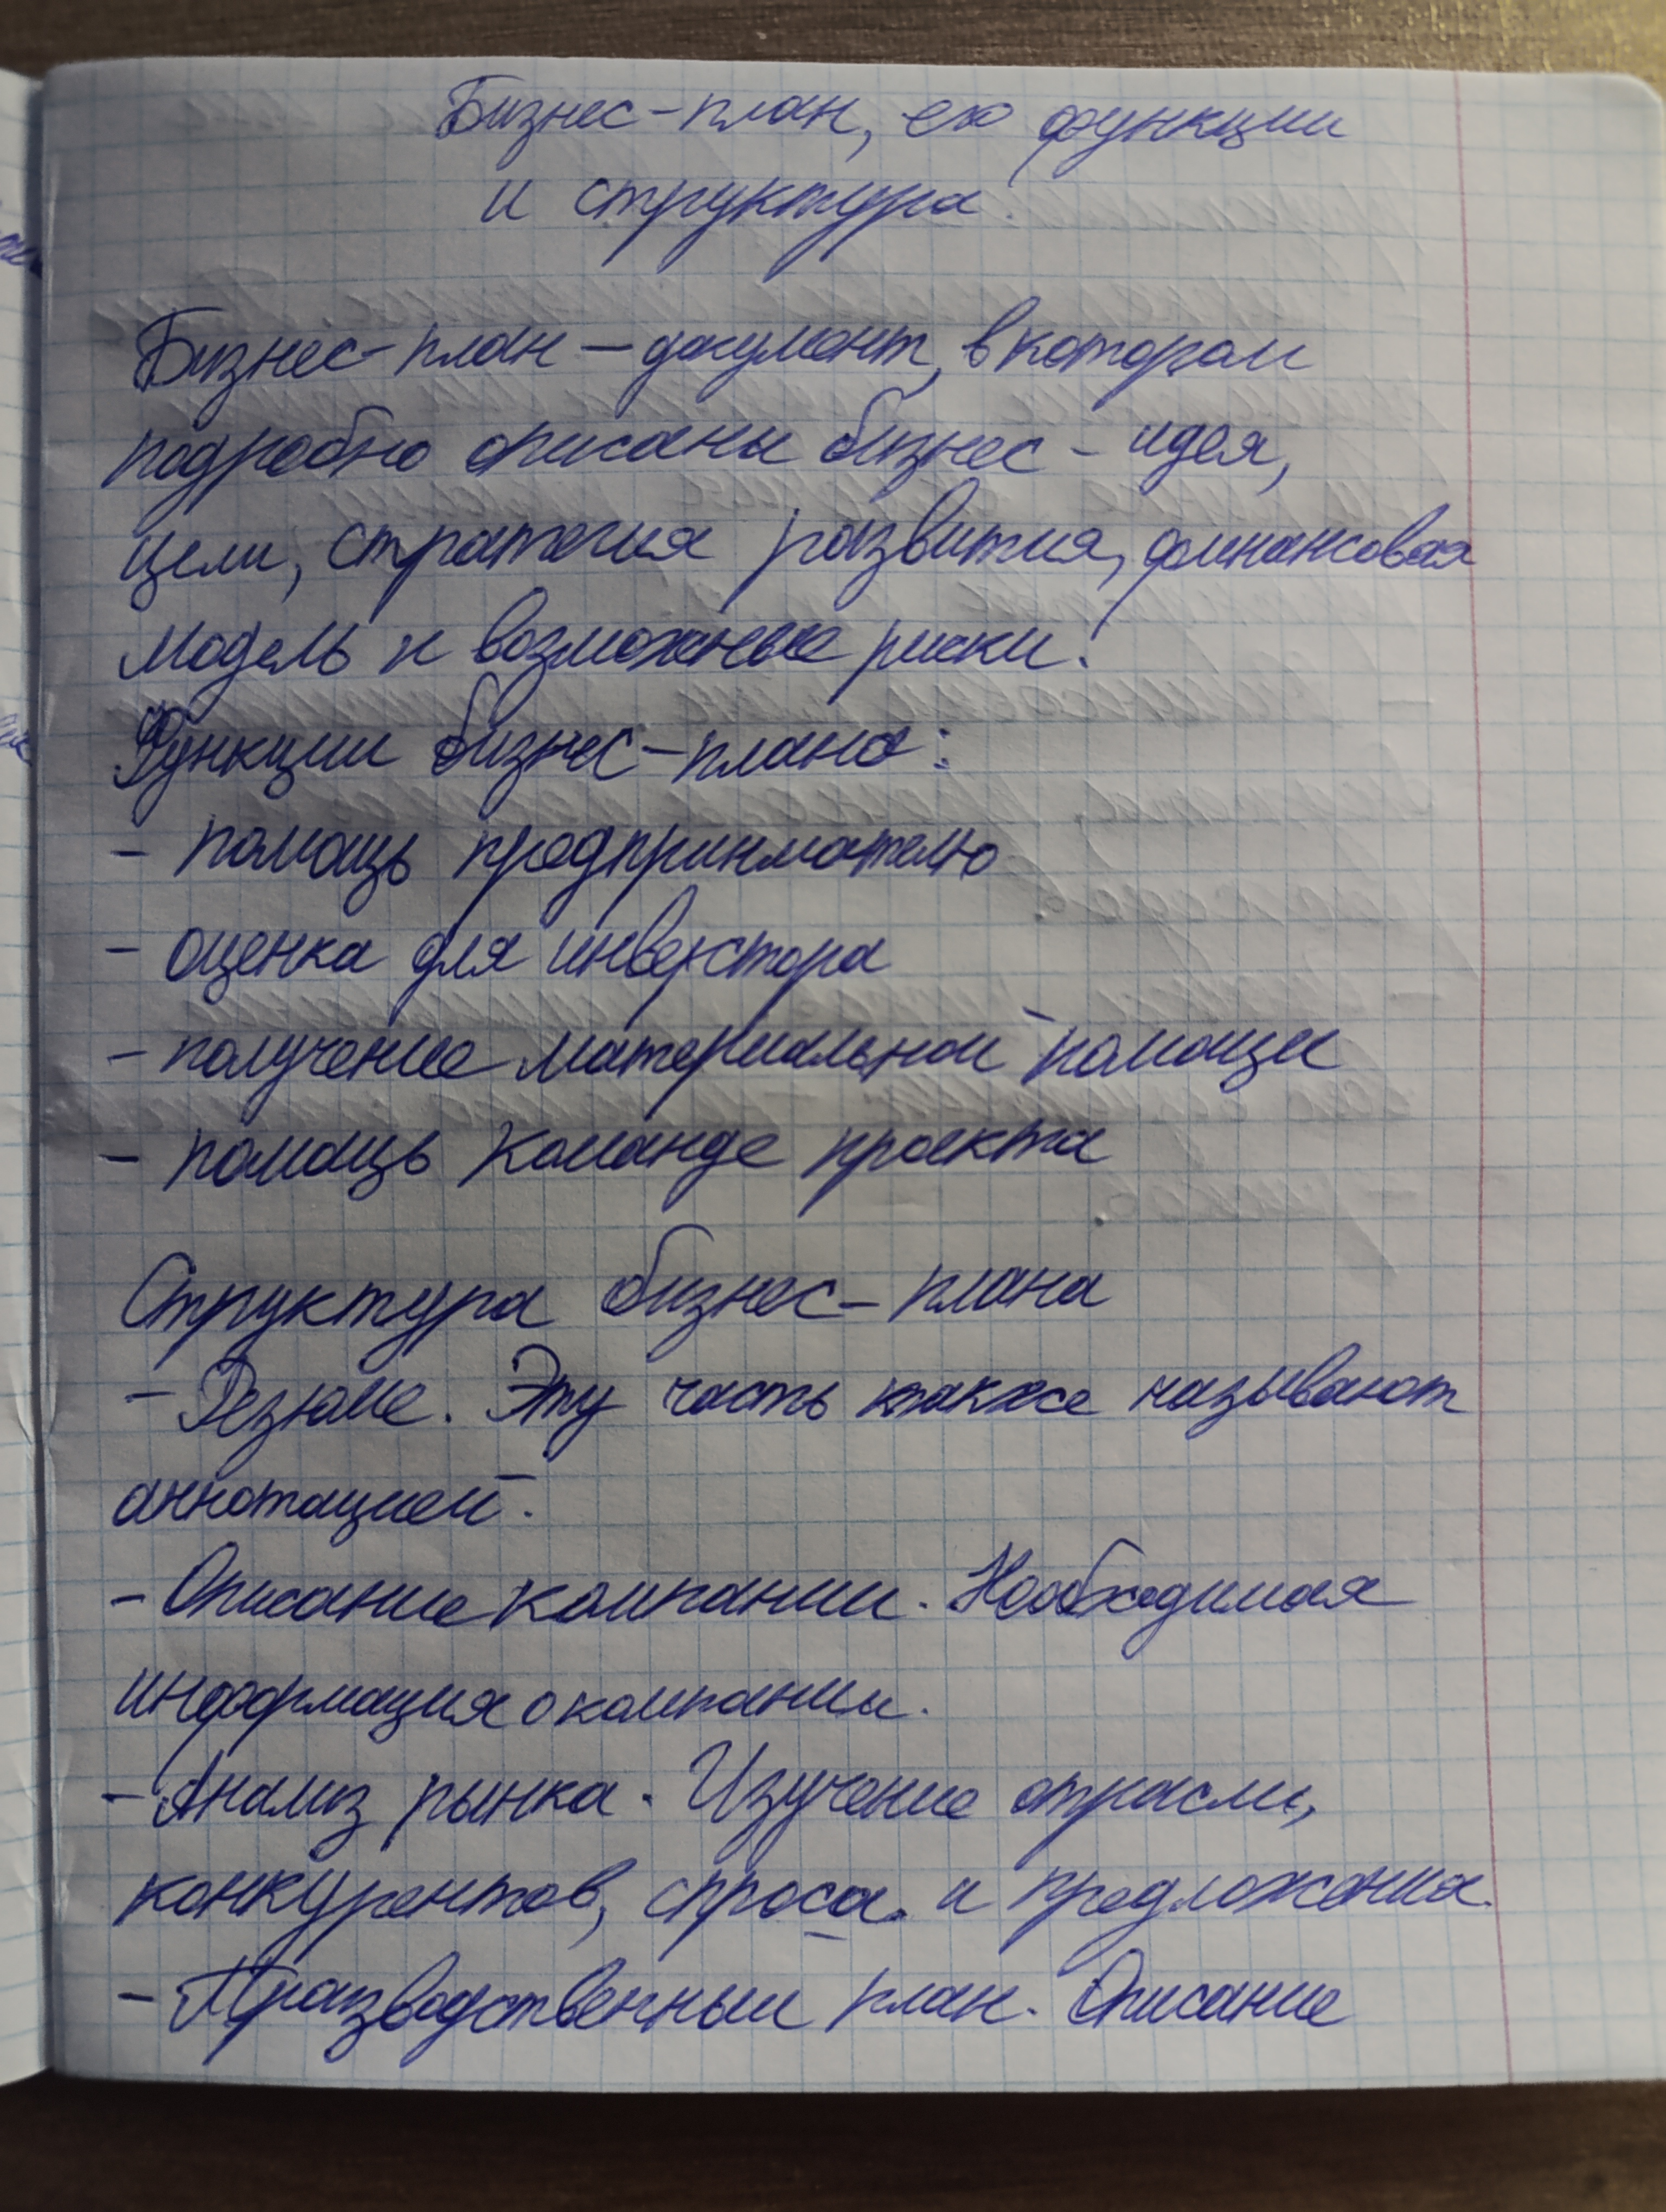 Бизнес-план, его функции
и структура.
Бизнес-план — документ, в котором
подробно описаны бизнес-идея,
цели, стратегия развития, финансовая
модель и возможные риски.
Функции бизнес-плана:
- помощь предпринимателю
- оценка для инвестора
- получение материальной помощи
- помощь команде проекта
Структура бизнес-плана
- Резюме. Эту часть также называют
аннотацией.
- Описание компании. Необходимая
информация о компании.
- Анализ рынка. Изучение отрасли,
конкурентов, спроса и предложения.
- Производственный план. Описание